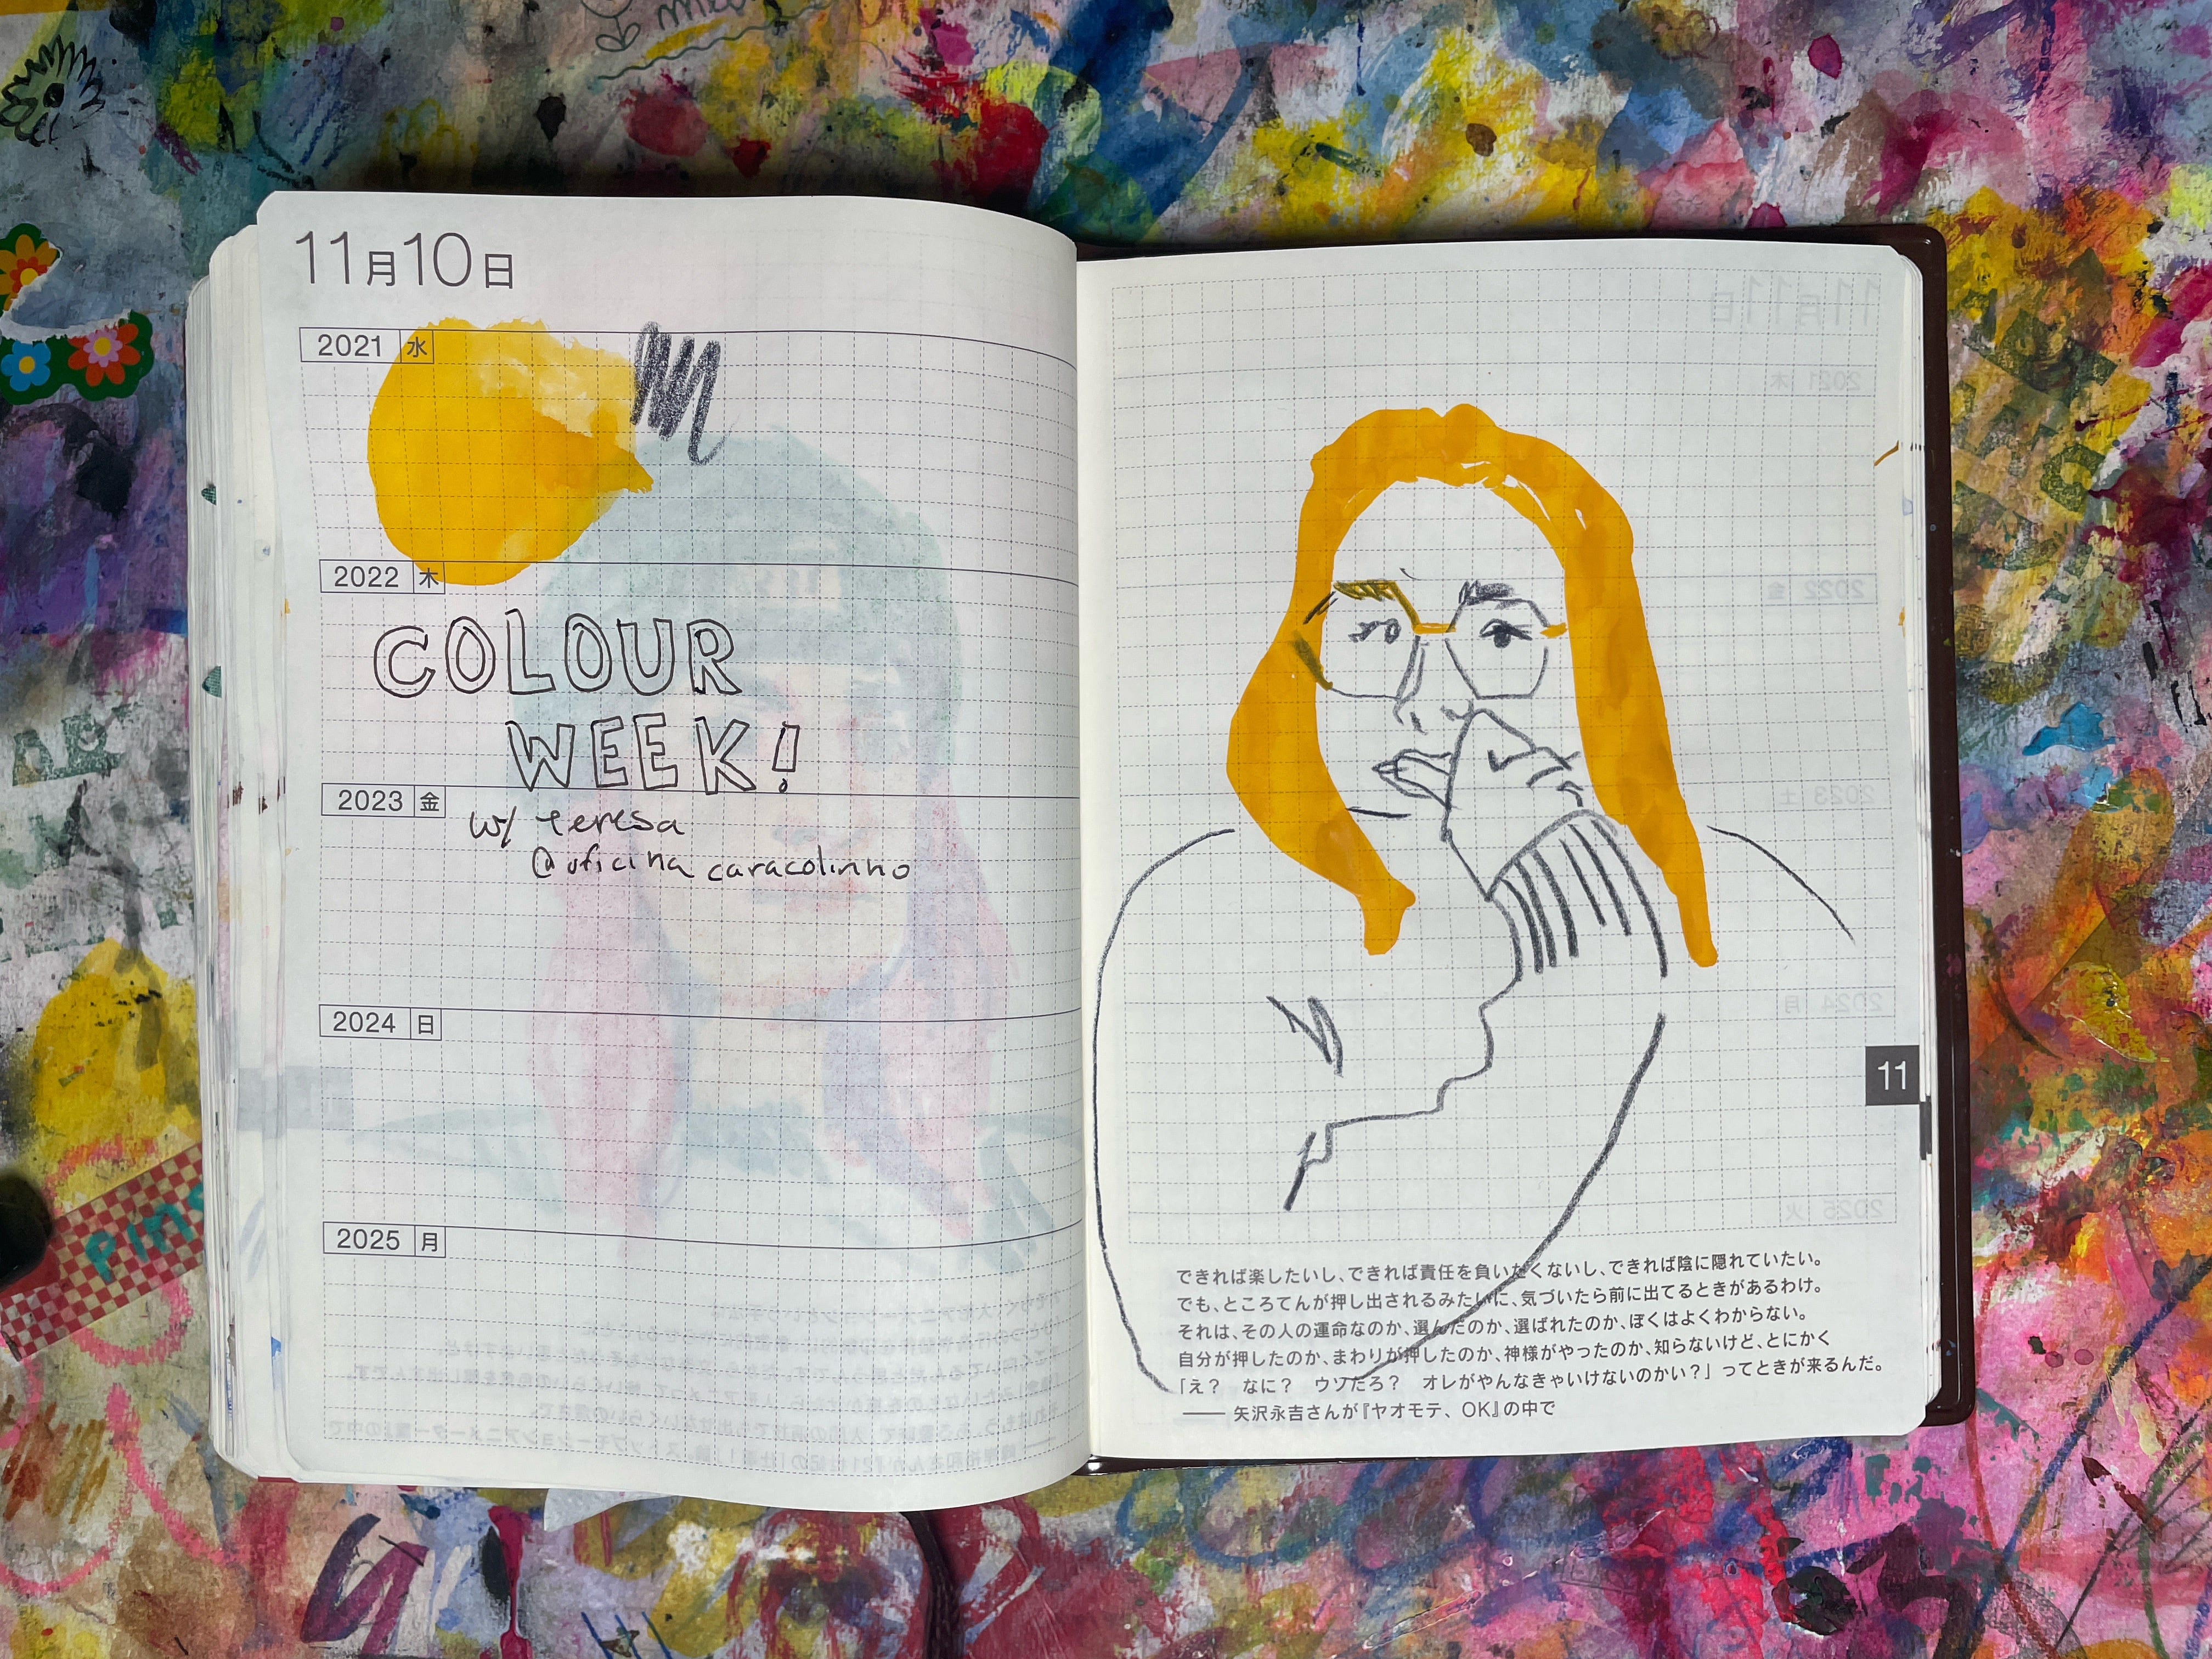 11月10日
2021 水
2022 木
COLOUR
WEEK!
2023 金
w/ teresa
@oficina caracolinho
2024 日
2025 月
11
できれば楽したいし、できれば責任を負いたくないし、できれば陰に隠れていたい。
でも、ところてんが押し出されるみたいに、気づいたら前に出てるときがあるわけ。
それは、その人の運命なのか、選んだのか、選ばれたのか、ぼくはよくわからない。
自分が押したのか、まわりが押したのか、神様がやったのか、知らないけど、とにかく
「え？ なに？ ウソだろ？ オレがやんなきゃいけないのかい？」ってときが来るんだ。
—— 矢沢永吉さんが『ヤオモテ、OK』の中で